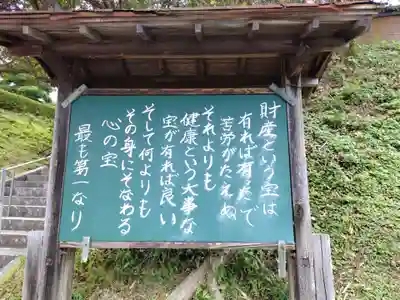 財産という宝は
有れば有ったで
苦労がたえぬ
それよりも
健康という大事な
宝が有れば良い
そして何よりも
その身にそなわる
心の宝
最も第一なり